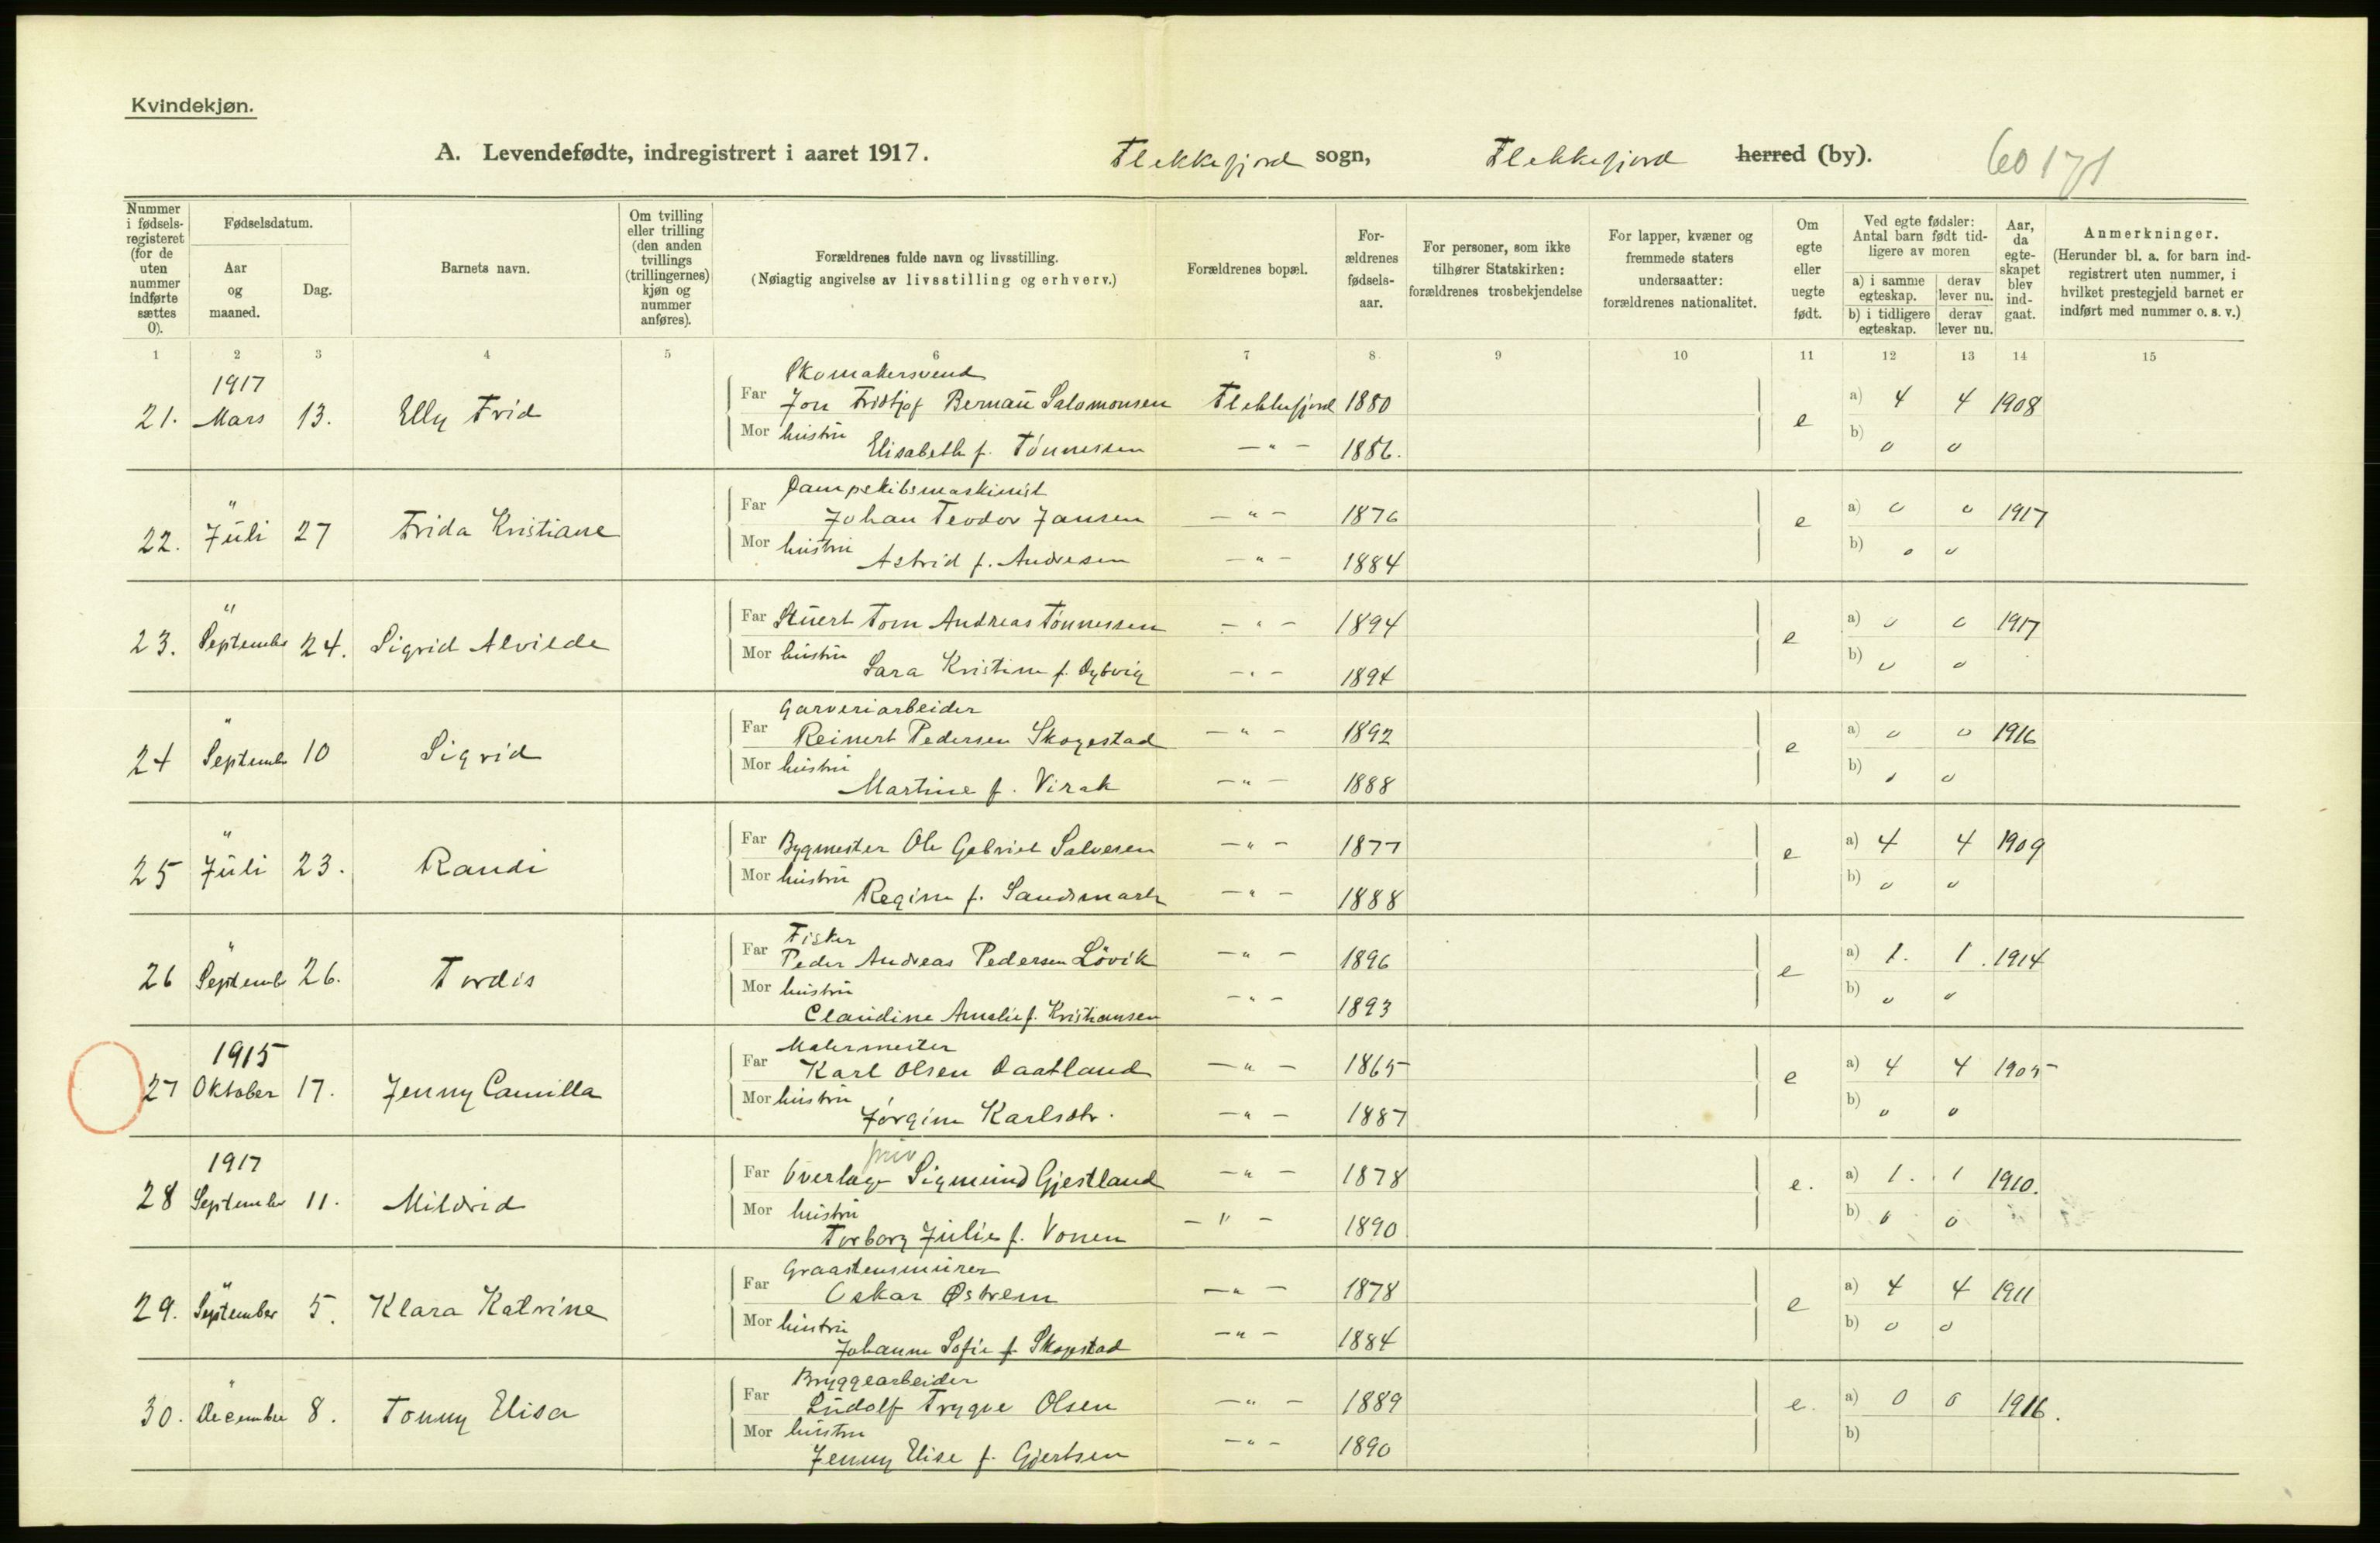 Kvindekjøn.
A. Levendefødte, indregistrert i aaret 1917. Flekkefjord sogn, Flekkefjord herred (by). 60 171
Nummer i fødsels-registeret (for de uten nummer indførte sættes 0).
Fødselsdatum.
Aar og maaned.
Dag.
Barnets navn.
Om tvilling eller trilling (den anden tvillings (trillingernes) kjøn og nummer anføres).
Forældrenes fulde navn og livsstilling.
(Nøiagtig angivelse av livsstilling og erhverv.)
Forældrenes bopæl.
For-ældrenes fødsels-aar.
For personer, som ikke tilhører Statskirken: forældrenes trosbekjendelse
For lapper, kvæner og fremmede staters undersaatter: forældrenes nationalitet.
Om egte eller uegte født.
Ved egte fødsler: Antal barn født tid-ligere av moren
a) i samme egteskap. derav lever nu.
b) i tidligere egteskap. derav lever nu.
Aar, da egte-skapet blev ind-gaat.
Anmerkninger.
(Herunder bl. a. for barn ind-registrert uten nummer, i hvilket prestegjeld barnet er indført med nummer o. s. v.)
1 2 3 4 5 6 7 8 9 10 11 12 13 14 15
1917 Skomakersvend
21. Mars 13. Elly Frid Far Jon Fridtjof Bernau Salomonsen Flekkefjord 1880 e a) 4 4 1908
Mor hustru Elisabeth f. Tønnessen — " — 1886. b) 0 0
" Dampskibsmaskinist
22. Juli 27 Frida Kristiane Far Johan Teodor Jansen — " — 1876 e a) 0 0 1917
Mor hustru Astrid f. Andresen — " — 1884 b) 0 0
"
23. September 24. Sigrid Alvilde Far Stuert Tom Andreas Tønnessen — " — 1894 e a) 0 0 1917
Mor hustru Sara Kristine f. Dybvig — " — 1894 b) 0 0
" Garveriarbeider
24 Septemb 10 Sigrid Far Reinert Pedersen Skogestad — " — 1892 e a) 0 0 1916
Mor hustru Martine f. Virak — " — 1888 b) 0 0
"
25 Juli 23. Randi Far Bygmester Ole Gabriel Salvesen — " — 1877 e a) 4 4 1909
Mor hustru Regine f. Sandsmark — " — 1888 b) 0 0
" Fisker
26 Septemb 26. Tordis Far Peder Andreas Pedersen Løvik — " — 1896 e a) 1. 1. 1914
Mor hustru Claudine Amalie f. Kristiansen — " — 1893 b) 0 0
1915 Malermester
27 Oktober 17. Jenny Camilla Far Karl Olsen Daatland — " — 1865 e a) 4 4 1905
Mor hustru Jørgine Karlsdtr. — " — 1887 b) 0 0
1917 priv
28 September 11. Mildrid Far Overlage Sigmund Gjestland — " — 1878 e. a) 1. 1 1910.
Mor hustru Torborg Julie f. Vonen — " — 1890 b) 0 0
" Graastensmurer
29. September 5. Klara Katrine Far Oskar Østrem — " — 1878 e a) 4 4 1911
Mor hustru Johanne Sofie f. Skogstad — " — 1884 b) 0 0
" Bryggearbeider
30. December 8. Tonny Elisa Far Ludolf Trygve Olsen — " — 1889 e. a) 0 0 1916.
Mor hustru Jenny Elise f. Gjertsen — " — 1890 b)